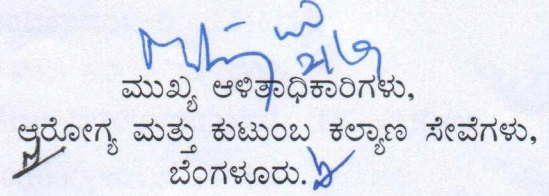 ಮುಖ್ಯ ಆಳಿತಾಧಿಕಾರಿಗಳು,
ಆರೋಗ್ಯ ಮತ್ತು ಕುಟುಂಬ ಕಲ್ಯಾಣ ಸೇವೆಗಳು,
ಬೆಂಗಳೂರು.